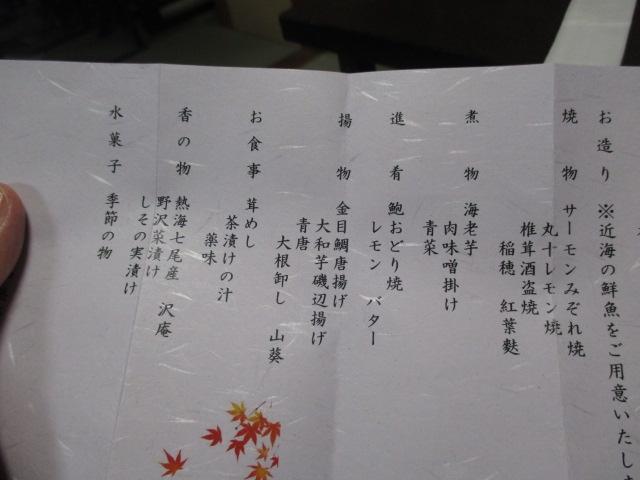 お造り ※近海の鮮魚をご用意いたしま
焼物 サーモンみぞれ焼
丸十レモン焼
椎茸酒盗焼
稲穂 紅葉麩
煮物 海老芋
肉味噌掛け
青菜
進肴 鮑おどり焼
レモン バター
揚物 金目鯛唐揚げ
大和芋磯辺揚げ
青唐
大根卸し 山葵
お食事 茸めし
茶漬けの汁
薬味
香の物 熱海七尾産 沢庵
野沢菜漬け
しその実漬け
水菓子 季節の物